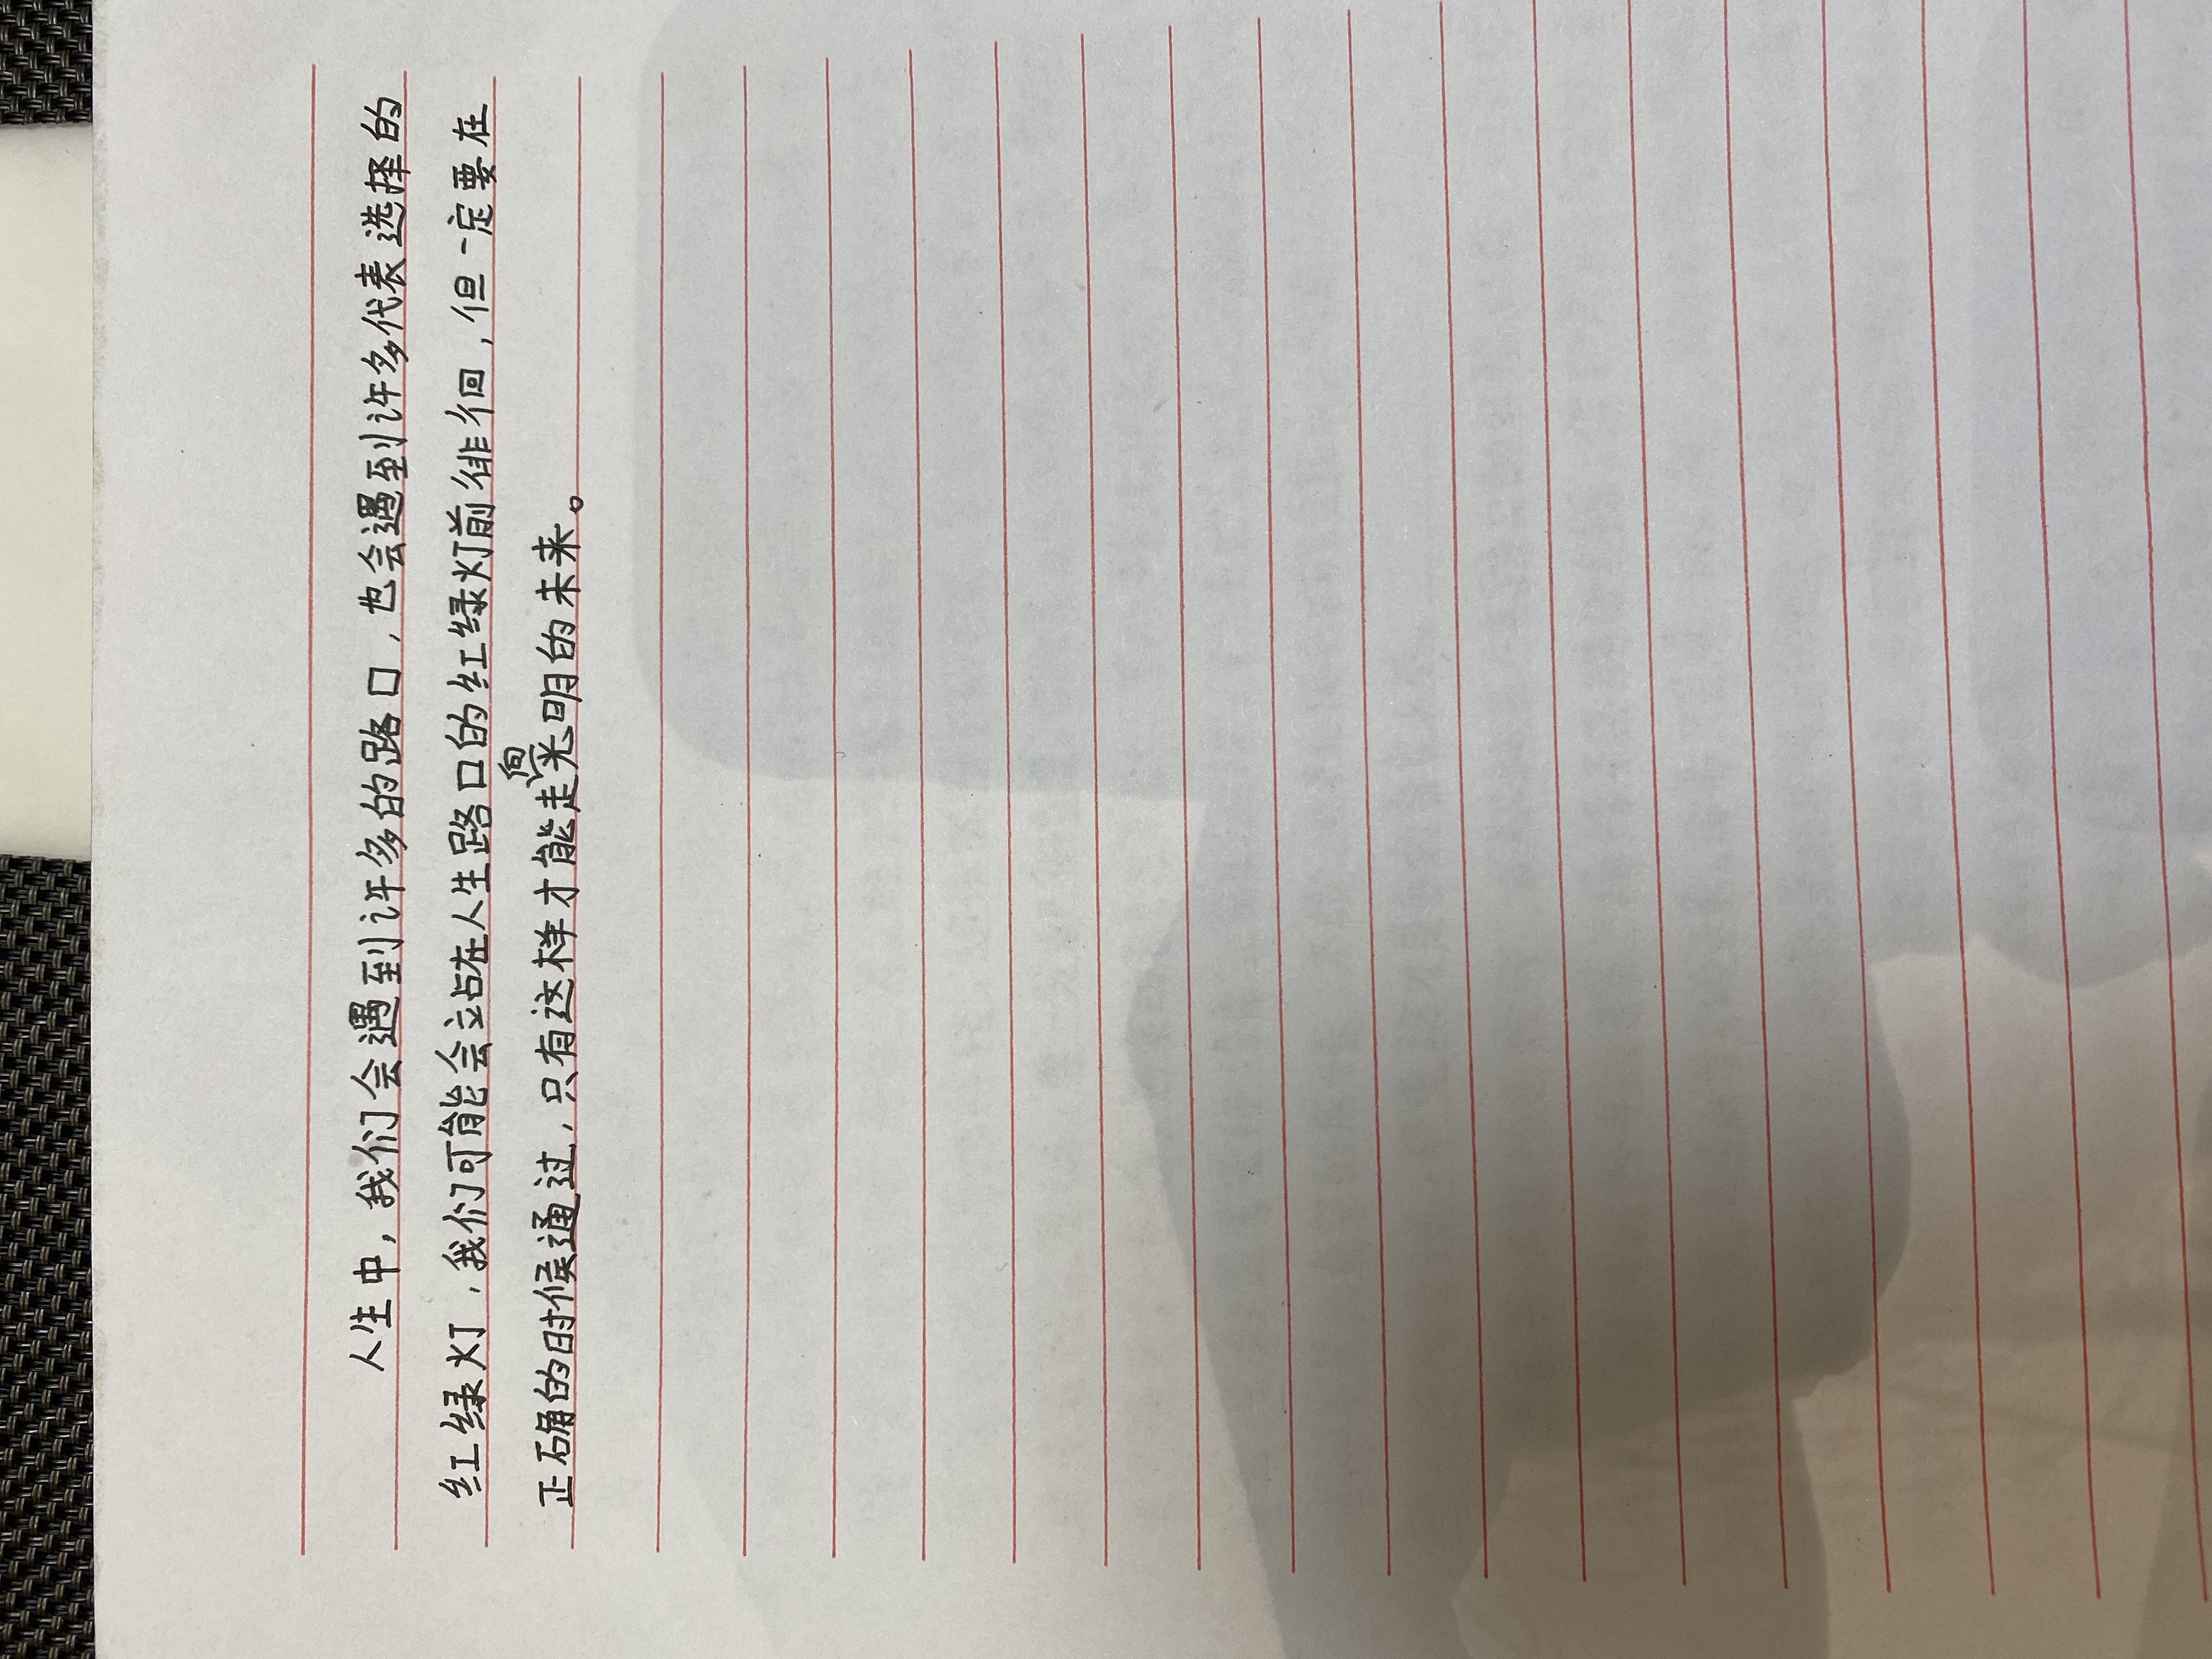 人生中，我们会遇到许多的路口，也会遇到许多代表选择的
红绿灯，我们可能会站在人生路口的红绿灯前徘徊，但一定要在
正确的时候通过，只有这样才能走向光明的未来。